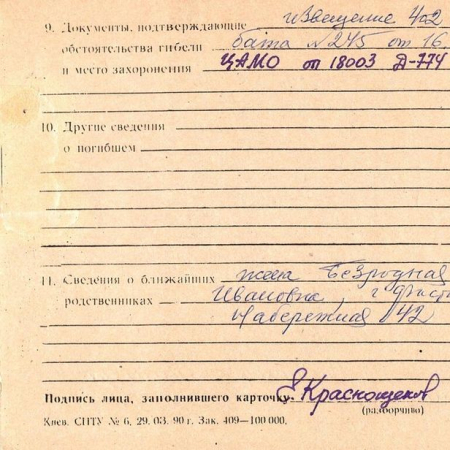 9. Документы, подтверждающие извещение 402
обстоятельства гибели бата № 245 от 16
и место захоронения ЦАМО оп 18003 Д-774
10. Другие сведения
о погибшем
11. Сведения о ближайших жена Безродная
родственниках Ивановна, г.
Набережная 42
Подпись лица, заполнившего карточку. Краснощеков
(разборчиво)
Киев. СПТУ № 6, 29. 03. 90 г. Зак. 409—100 000.